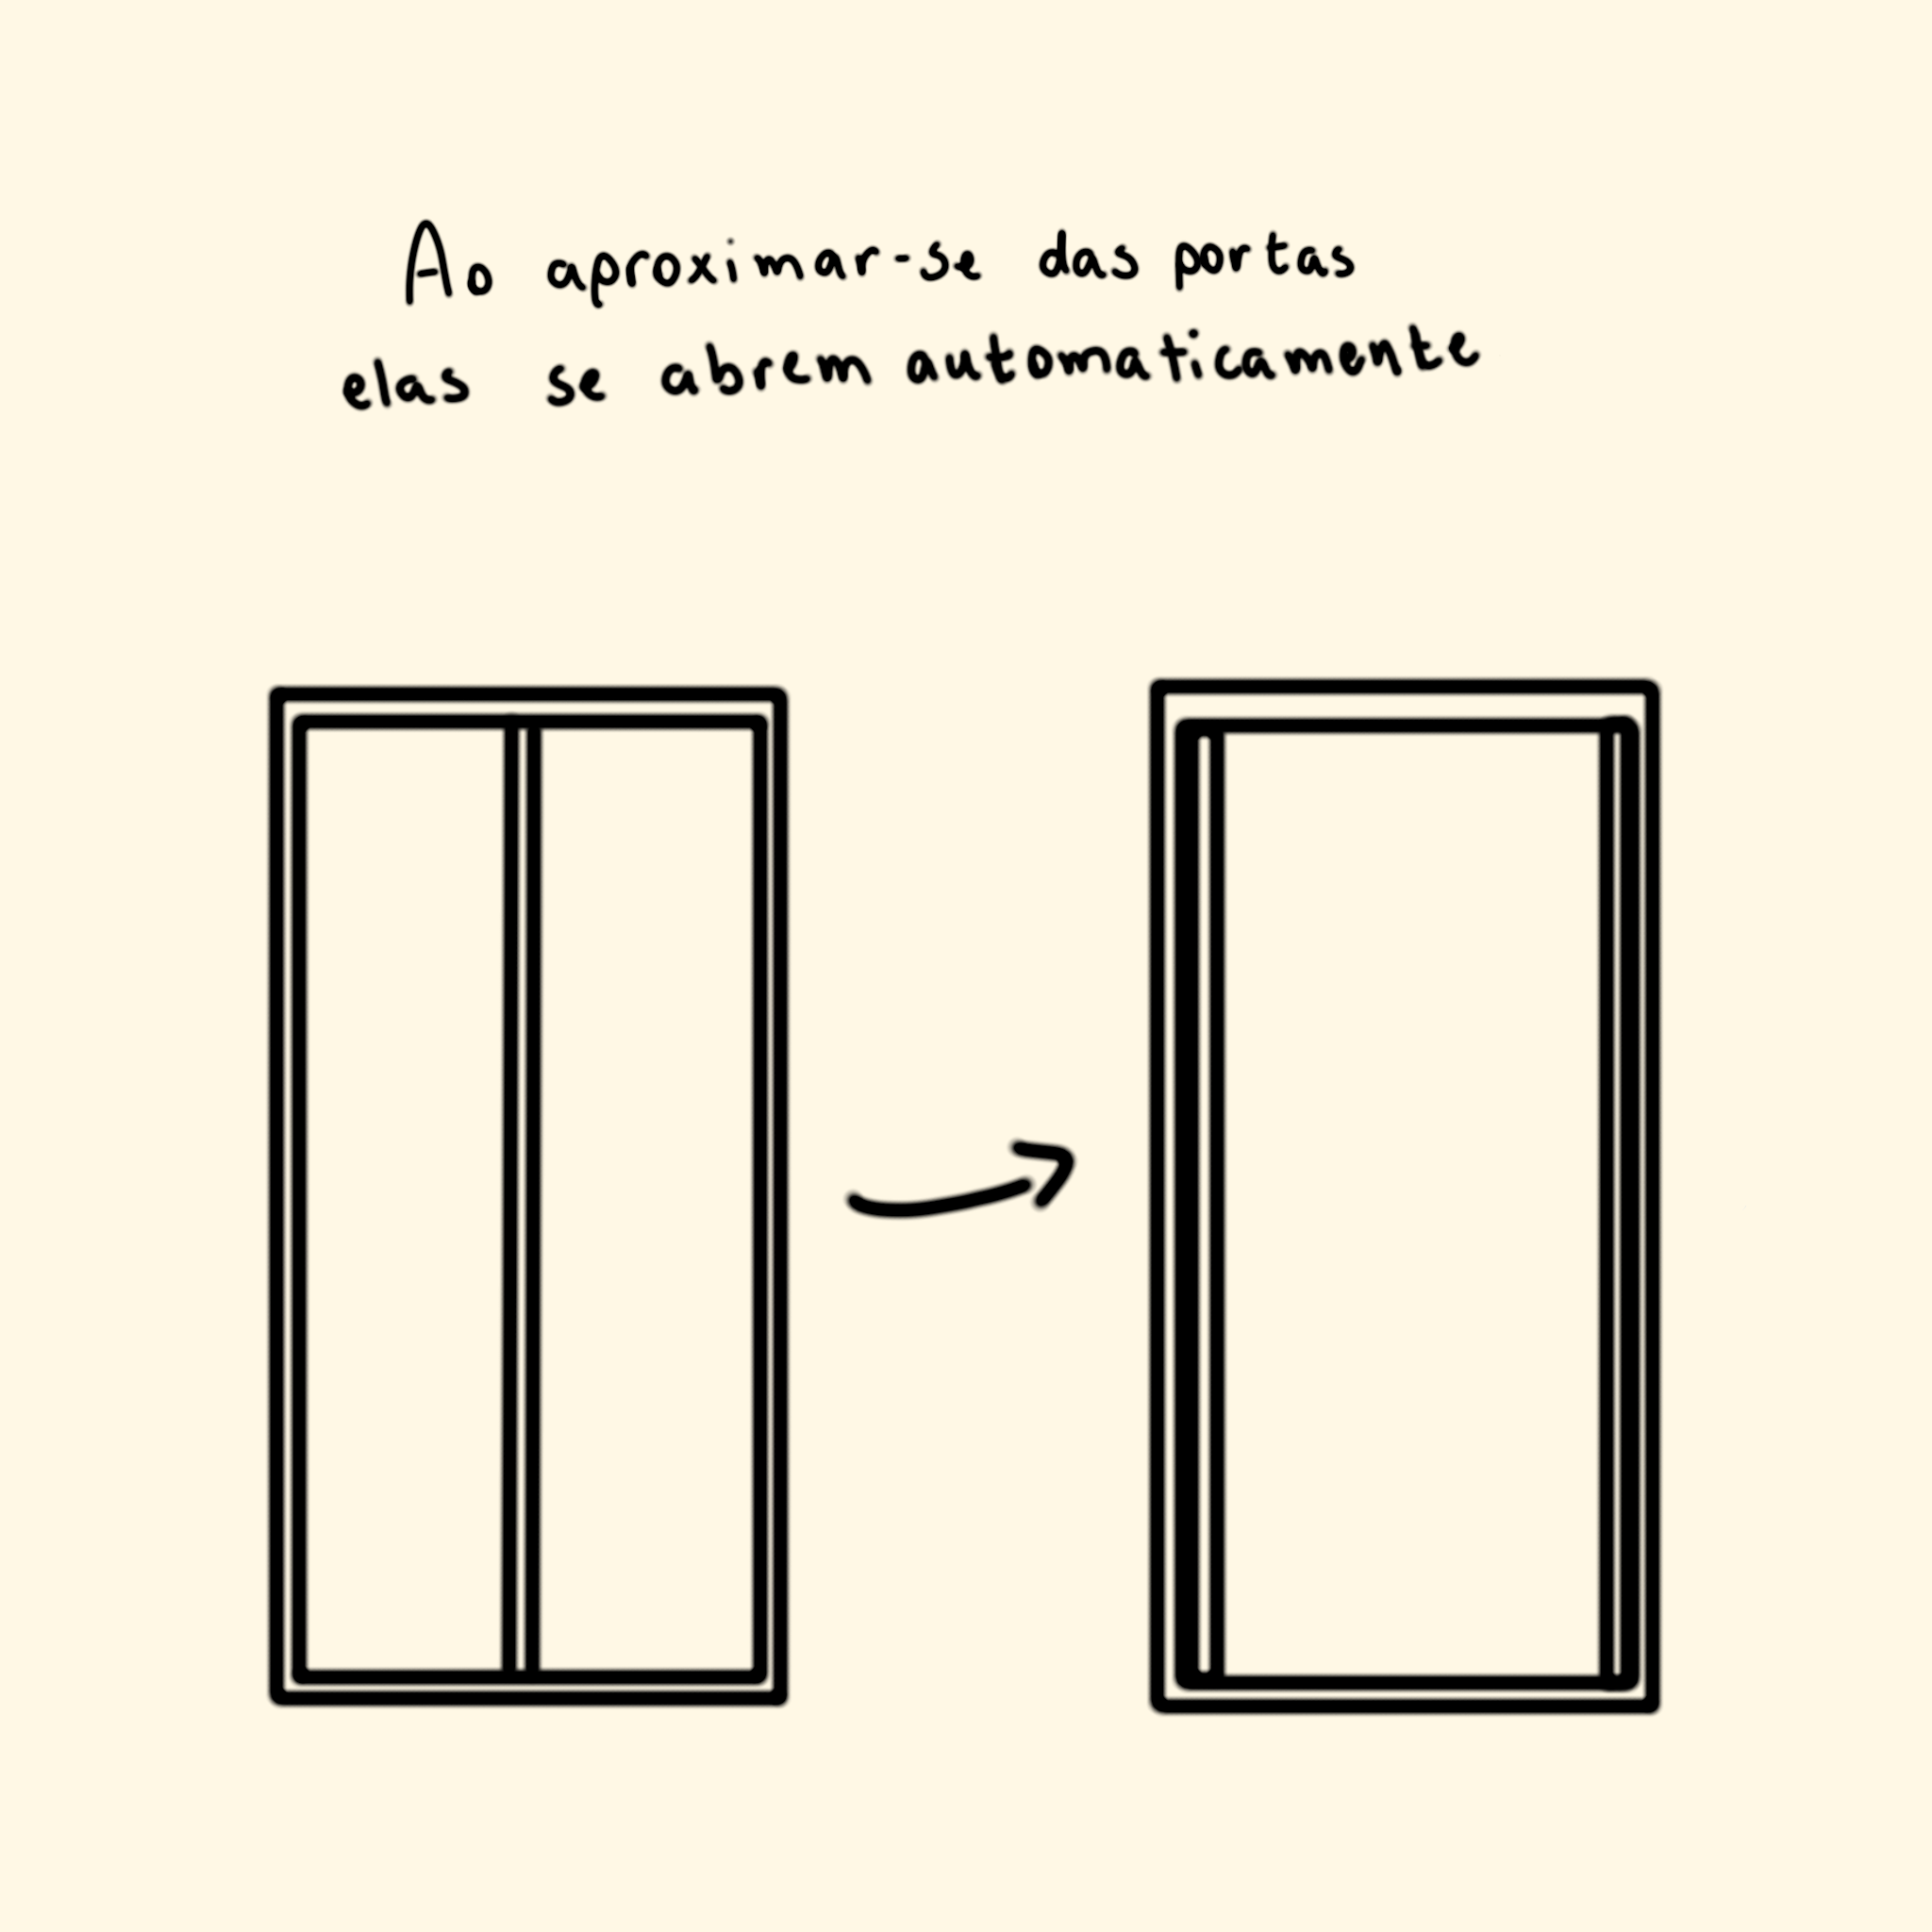 Ao aproximar-se das portas
elas se abrem automaticamente